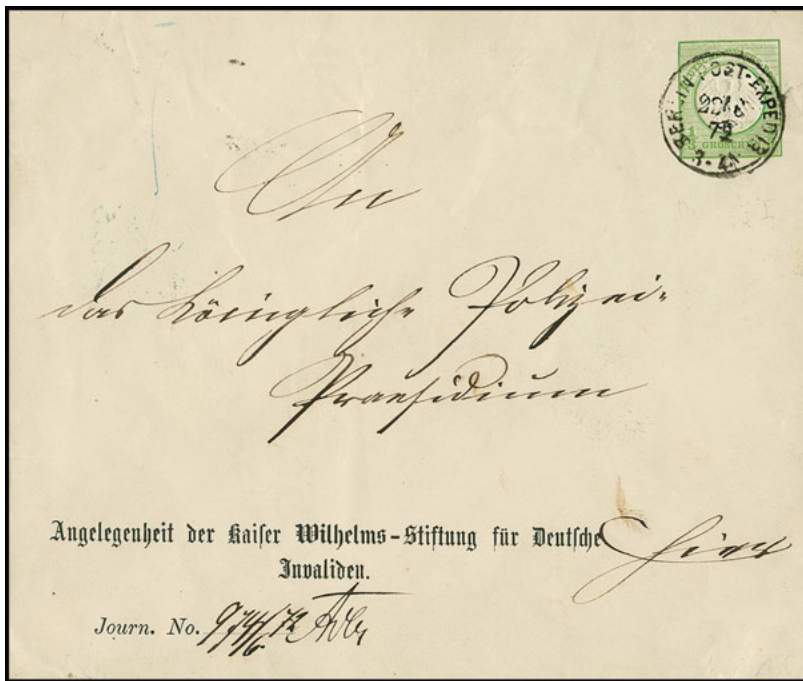 BERLIN POST-EXPED. 13
72
1/3 GROSCHEN
An
das Königliche Polizei-
Praesidium
Angelegenheit der Kaiser Wilhelms-Stiftung für Deutsche
Invaliden.
hier
Journ. No.